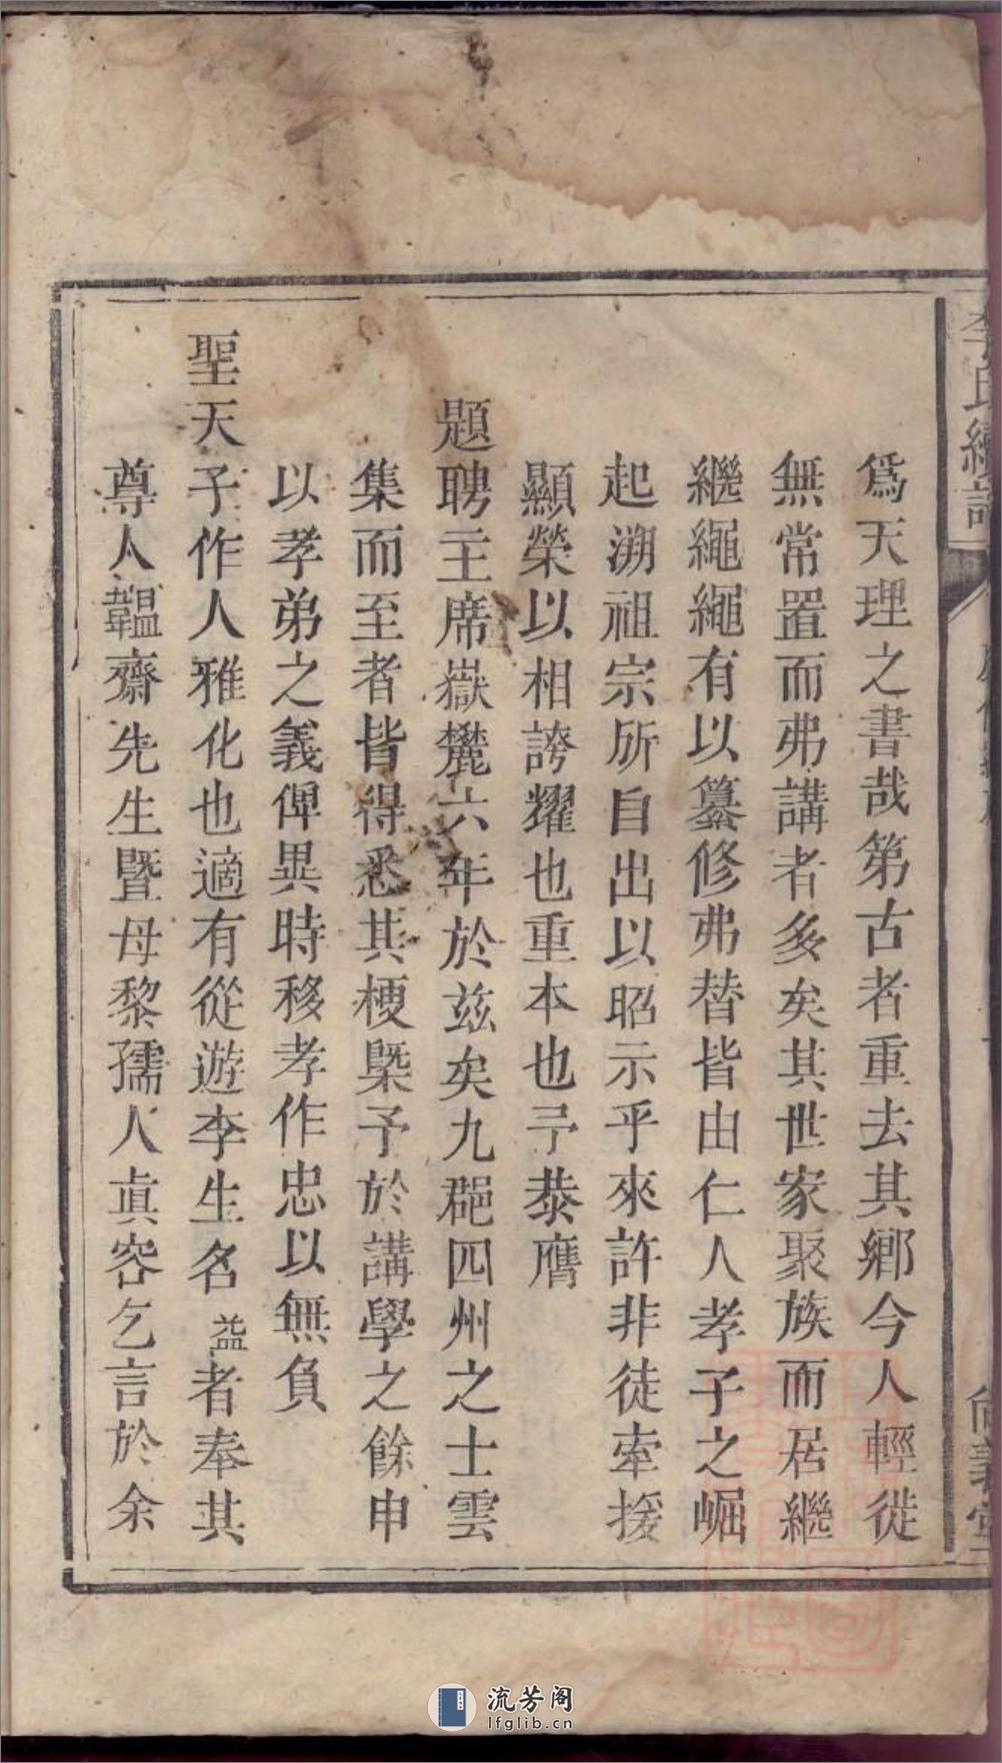 爲天理之書哉第古者重去其鄉今人輕徙
無常置而弗講者多矣其世家聚族而居繼
繼繩繩有以纂修弗替皆由仁人孝子之崛
起溯祖宗所自出以昭示乎來許非徒牽援
顯榮以相誇耀也重本也予恭膺
題聘主席嶽麓六年於茲矣九郡四州之士雲
集而至者皆得悉其梗槩予於講學之餘申
以孝弟之義俾異時移孝作忠以無負
聖天子作人雅化也適有從遊李生名益者奉其
尊人韞齋先生暨母黎孺人眞容乞言於余
流芳阁
lfglib.cn